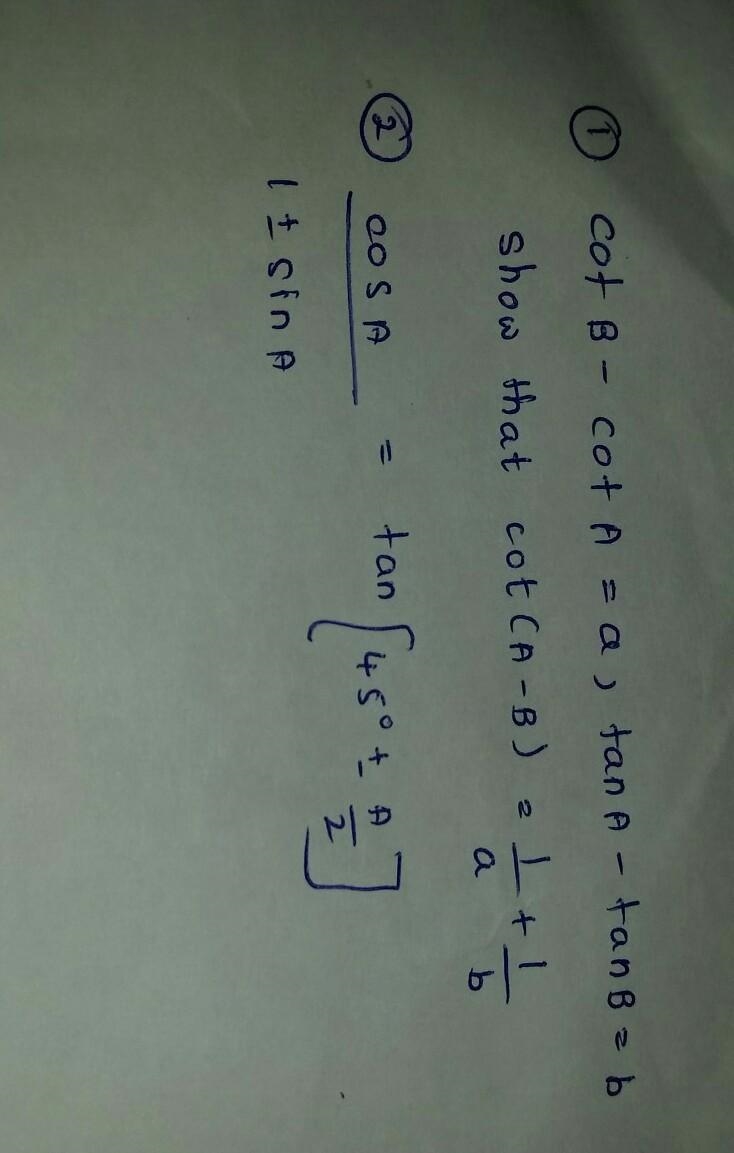 ① cot B - cot A = a, tan A - tan B = b
show that cot (A - B) = 1/a + 1/b
② cos A / 1 ± sin A = tan [45° ± A/2]